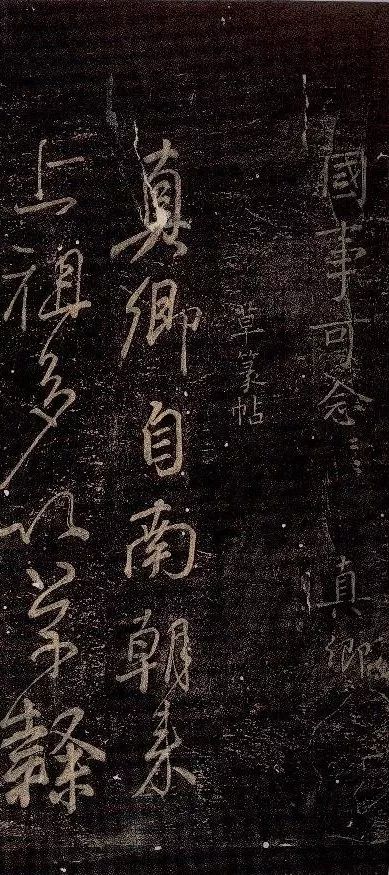 國事可念
真卿
草篆帖
真卿自南朝来
上祖多以草隸